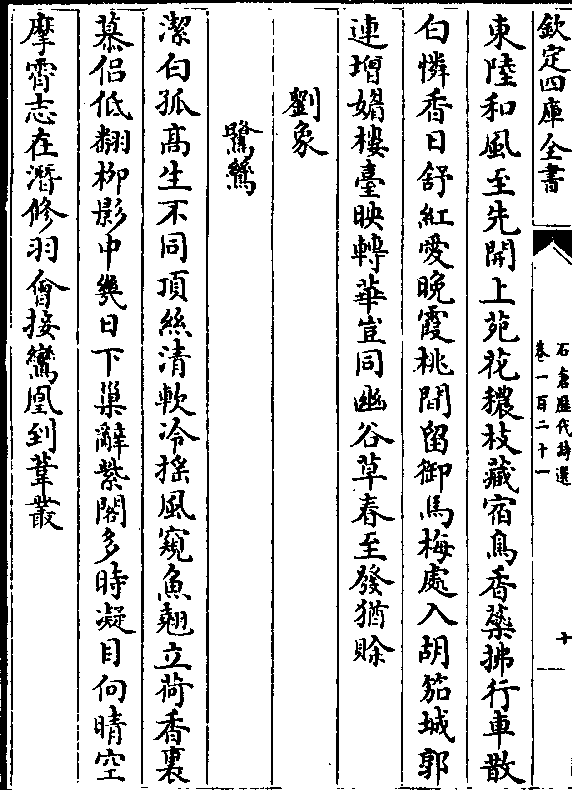 欽定四庫全書
石倉歷代詩選
卷一百二十一
十
東陸和風至先開上苑花穠枝藏宿鳥香蘂拂行車散
白憐香日舒紅愛晚霞桃間留御馬梅處入胡笳城郭
連增媚樓臺映轉華豈同幽谷草春至發猶賒
劉象
鷺鷥
潔白孤高生不同頂絲清軟冷揺風窺魚翹立荷香裏
慕侣低翻栁影中幾日下巢辭紫閣多時凝目向晴空
摩霄志在潛修羽㑹接鸞凰到葦叢